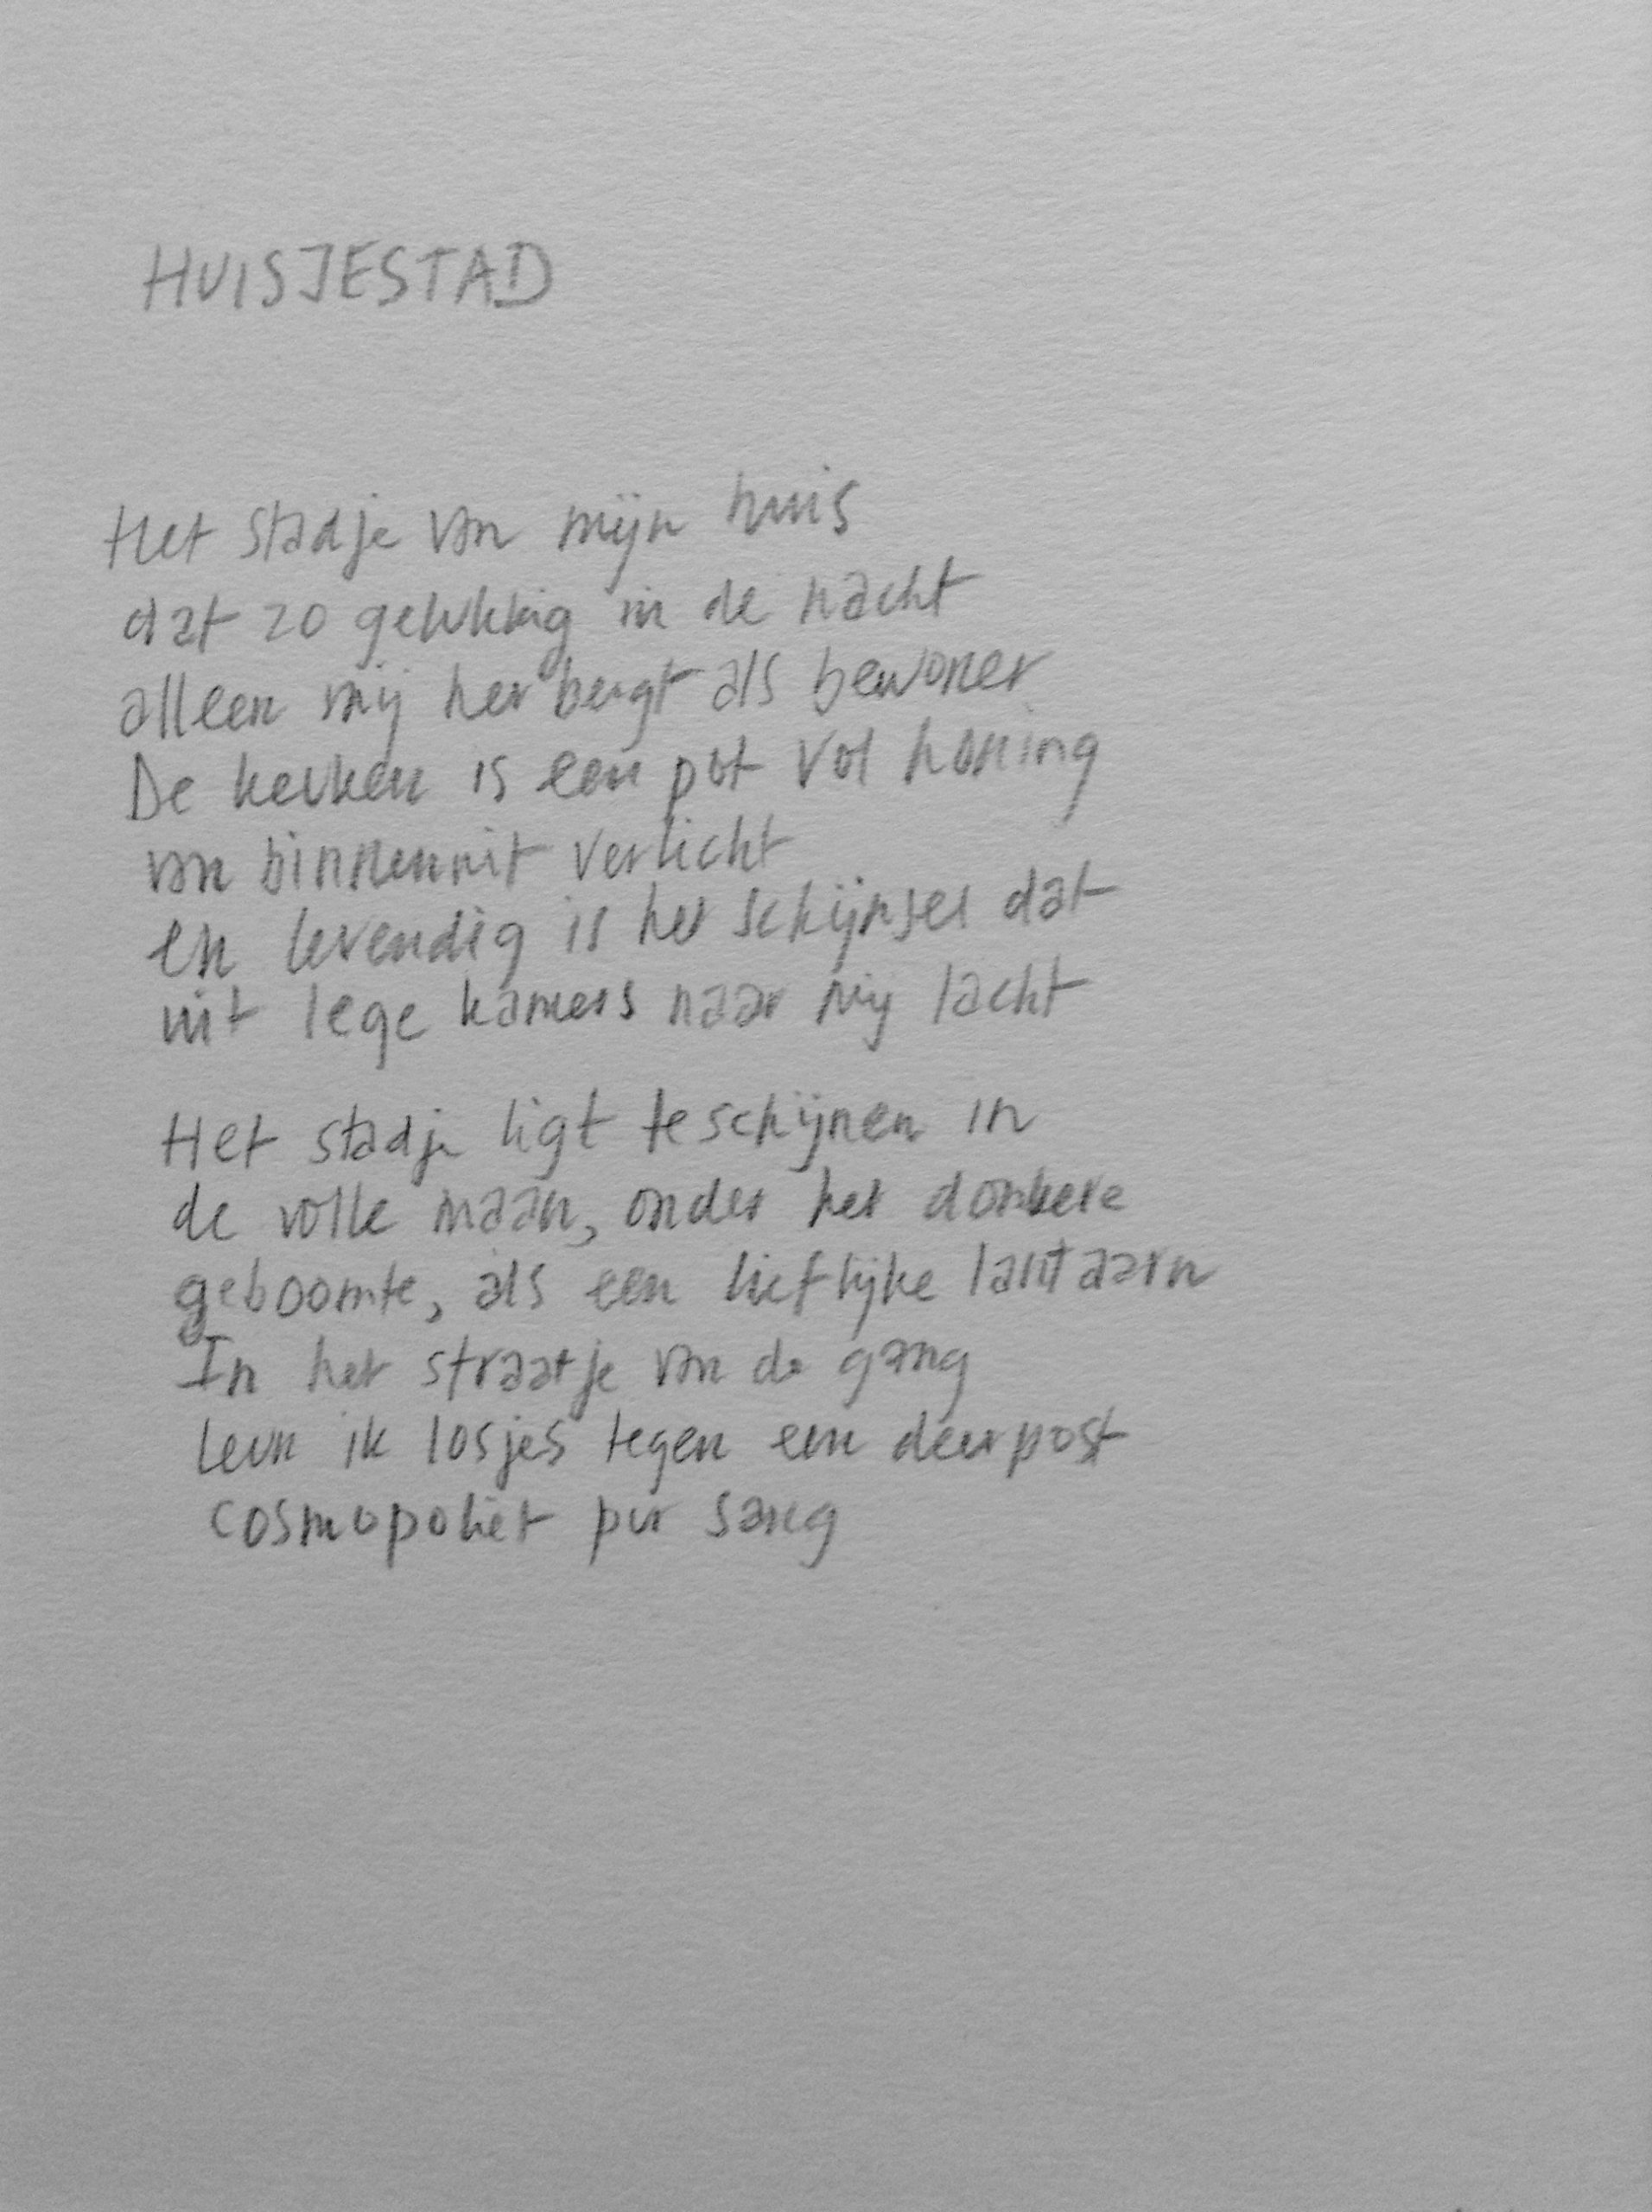 HUISJESTAD
Het stadje van mijn huis
dat zo gelukkig in de nacht
alleen mij herbergt als bewoner
De keuken is een pot vol honing
van binnenuit verlicht
en levendig is het schijnsel dat
uit lege kamers naar mij lacht
Het stadje ligt te schijnen in
de volle maan, onder het donkere
geboomte, als een lieflijke lantaarn
In het straatje van de gang
leun ik losjes tegen een deurpost
cosmopoliet pur sang